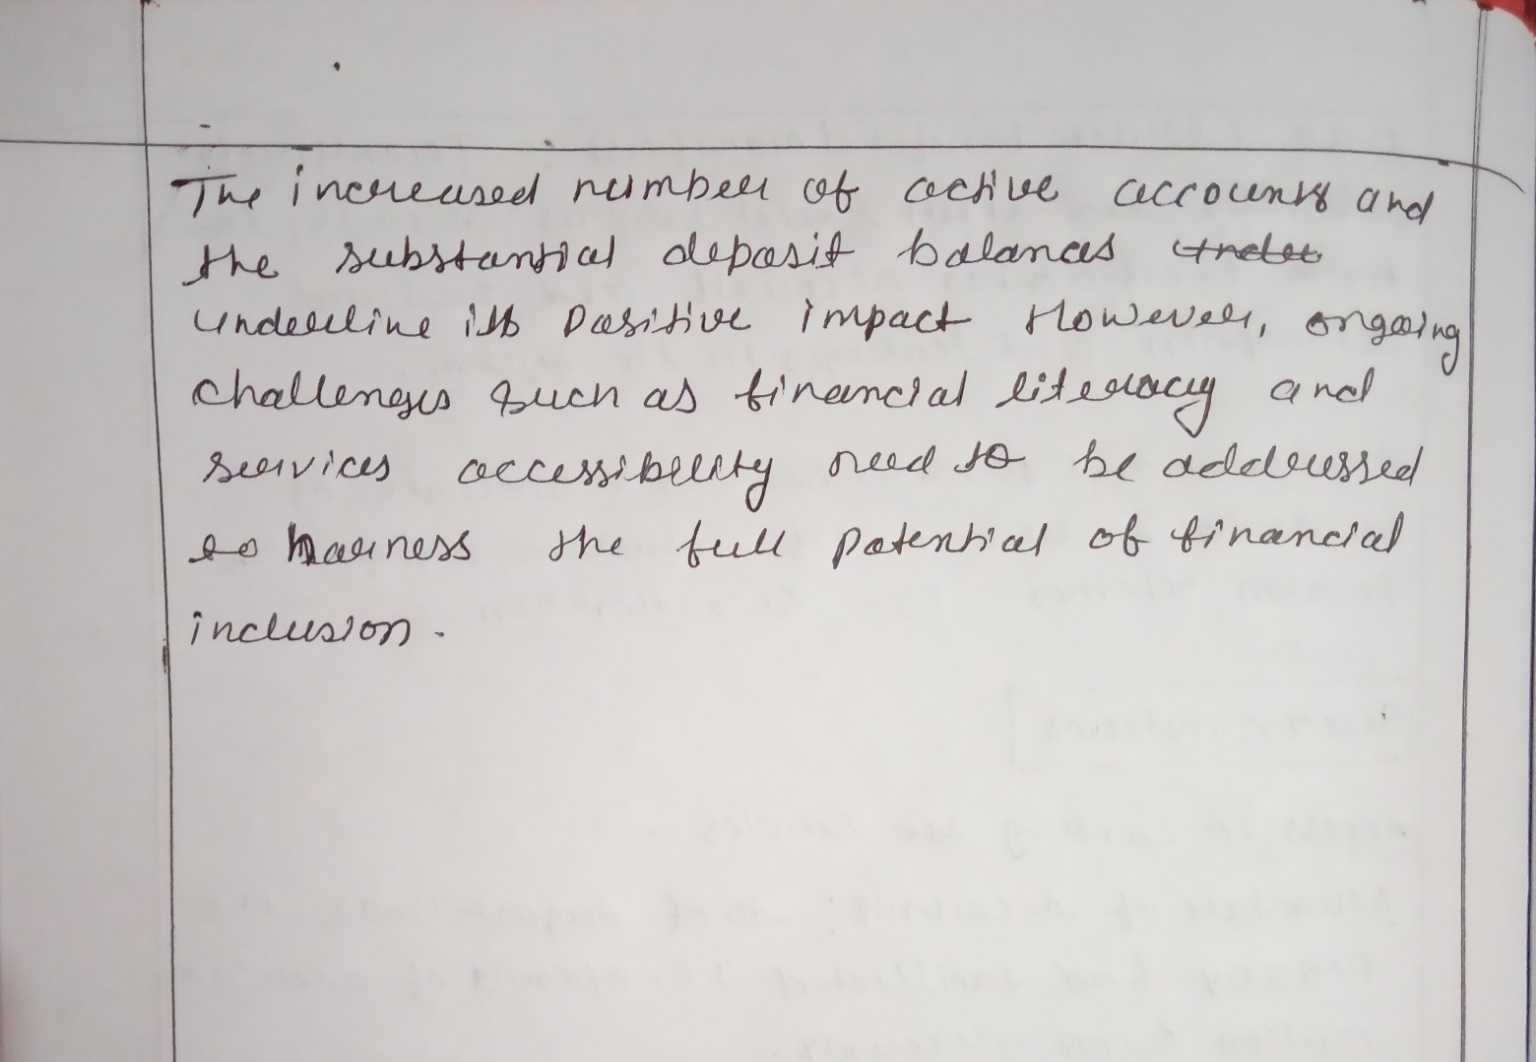 The increased number of active accounts and
the substantial deposit balances
underline its positive impact However, ongoing
challenges such as financial literacy and
services accessibility need to be addressed
to harness the full potential of financial
inclusion.